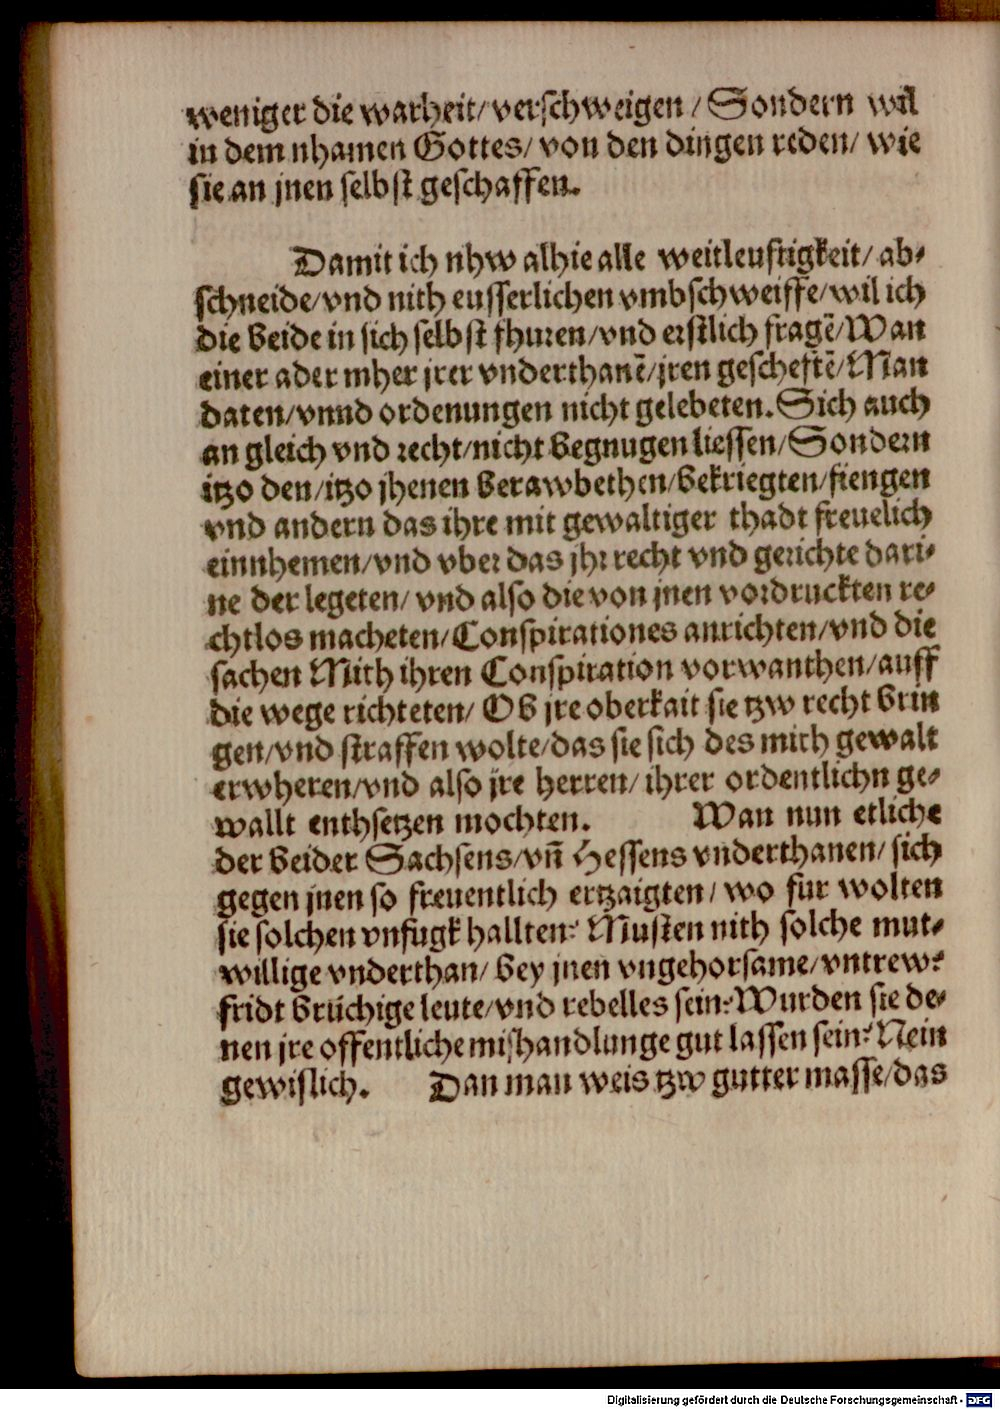 weniger die warheit/ verschweigen / Sondern wil
in dem nhamen Gottes/ von den dingen reden/ wie
sie an jnen selbst geschaffen.
Damit ich nhw alhie alle weitleuftigkeit/ ab⸗
schneide/vnd nith eusserlichen vmbschweiffe/wil ich
die beide in sich selbst fhuren/vnd erstlich fragẽ/Wan
einer ader mher jrer vnderthanẽ/jren gescheftẽ/Man
daten/vnnd ordenungen nicht gelebeten. Sich auch
an gleich vnd recht/nicht begnugen liessen/Sondern
itzo den/itzo jhenen berawbethen/bekriegten/fiengen
vnd andern das ihre mit gewaltiger thadt freuelich
einnhemen/vnd vber das jhr recht vnd gerichte dari⸗
ne der legeten/ vnd also die von jnen vordruckten re⸗
chtlos macheten/Conspirationes anrichten/vnd die
sachen Mith ihren Conspiration vorwanthen/auff
die wege richteten/ Ob jre oberkait sie tzw recht brin
gen/vnd straffen wolte/das sie sich des mith gewalt
erwheren/vnd also jre herren/ ihrer ordentlichn ge⸗
wallt enthsetzen mochten. Wan nun etliche
der beider Sachsens/vñ Hessens vnderthanen/ sich
gegen jnen so freuentlich ertzaigten/ wo fur wolten
sie solchen vnfugk hallten? Musten nith solche mut⸗
willige vnderthan/ bey jnen vngehorsame/vntrew?
fridt brüchige leute/vnd rebelles sein? Wurden sie de⸗
nen jre offentliche mishandlunge gut lassen sein? Nein
gewislich. Dan man weis tzw gutter masse/das
Digitalisierung gefördert durch die Deutsche Forschungsgemeinschaft - DFG